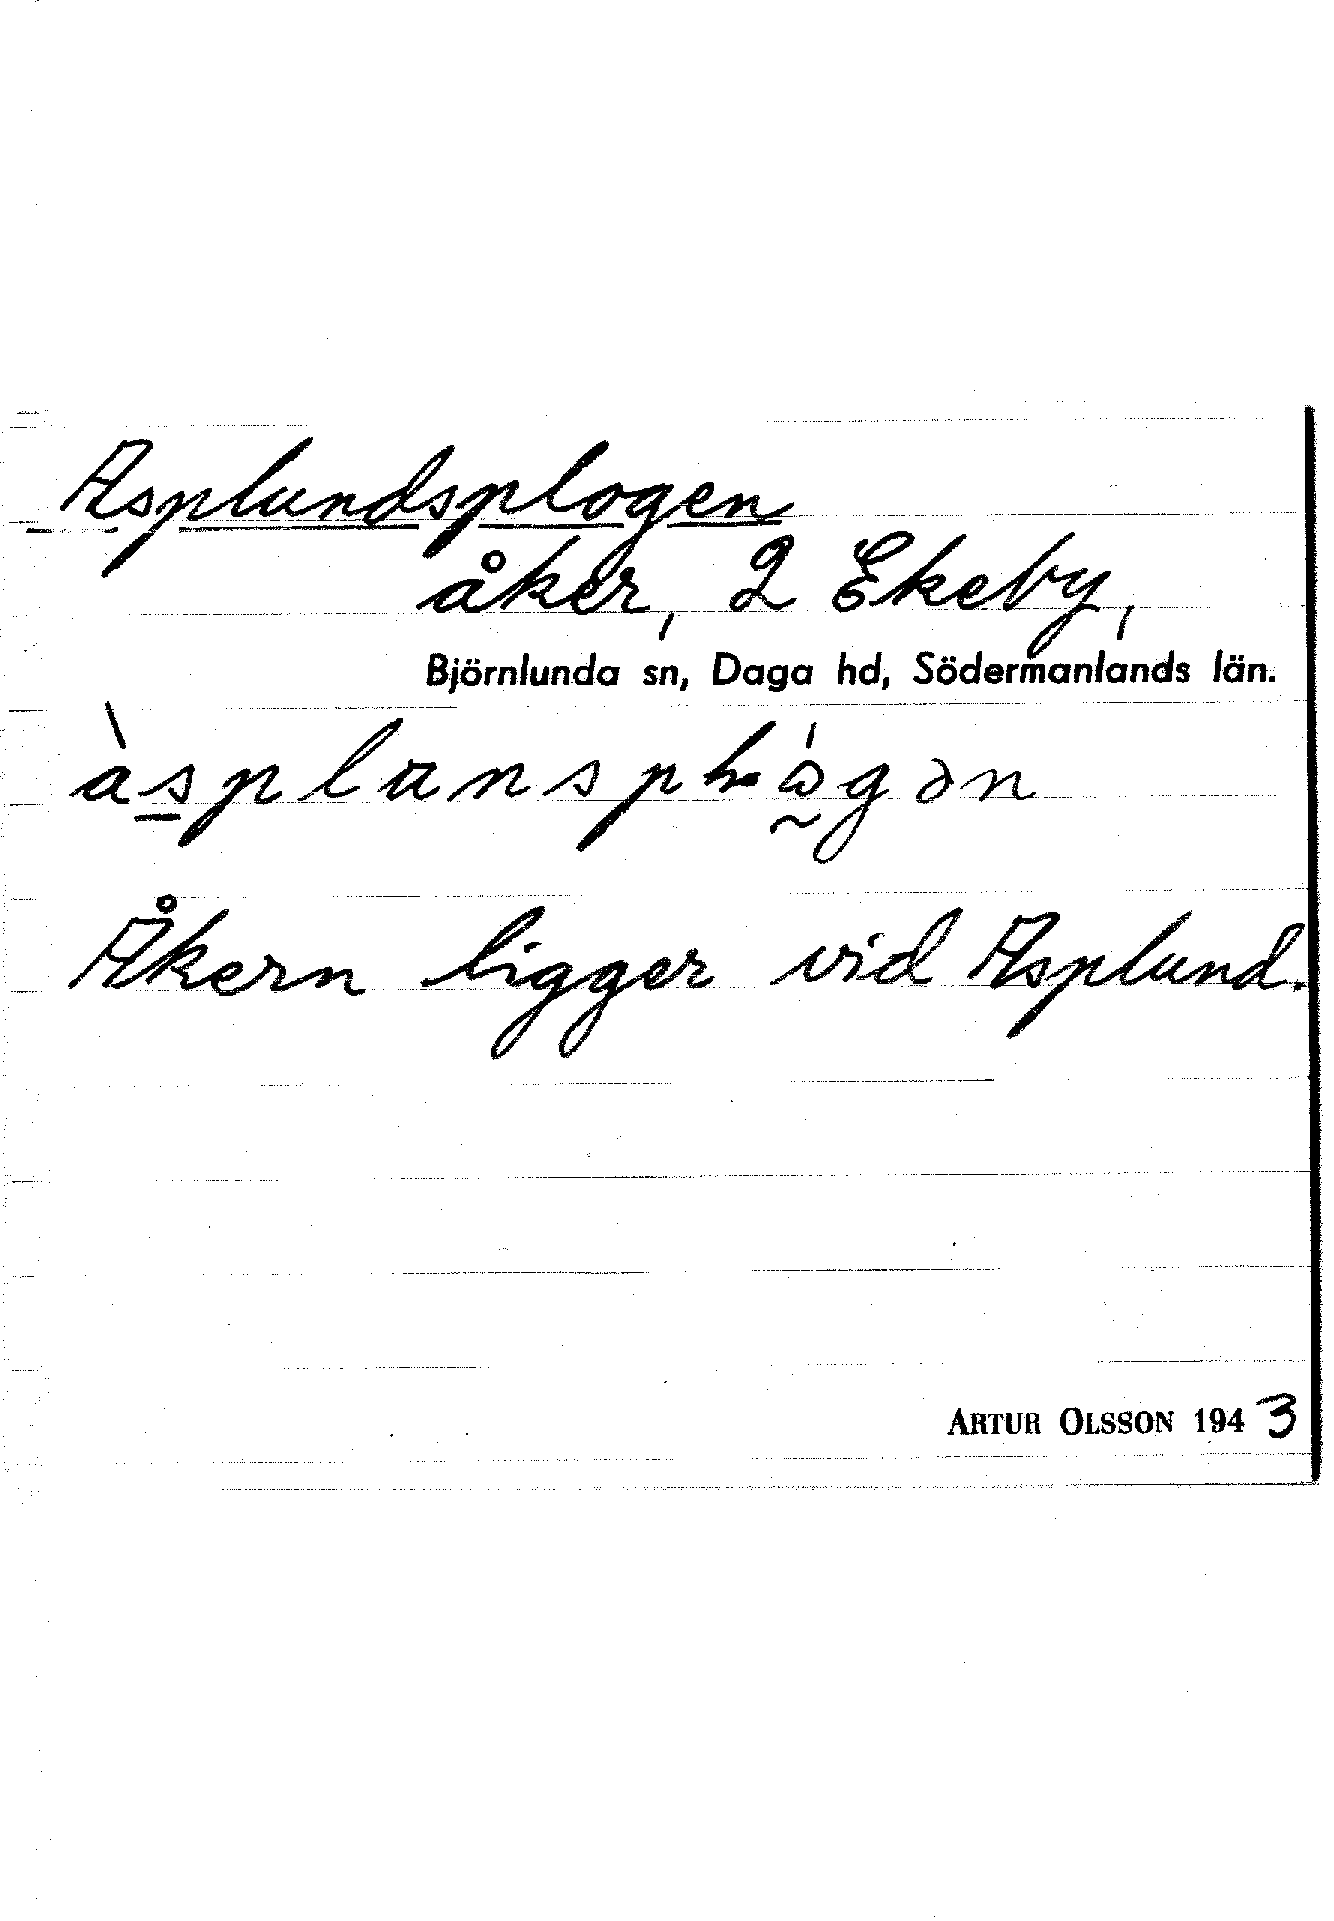 Asplundsplogen
åker, 2 Ekeby,
Björnlunda sn, Daga hd, Södermanlands län.
Åkern ligger vid Asplund.
ARTUR OLSSON 1943